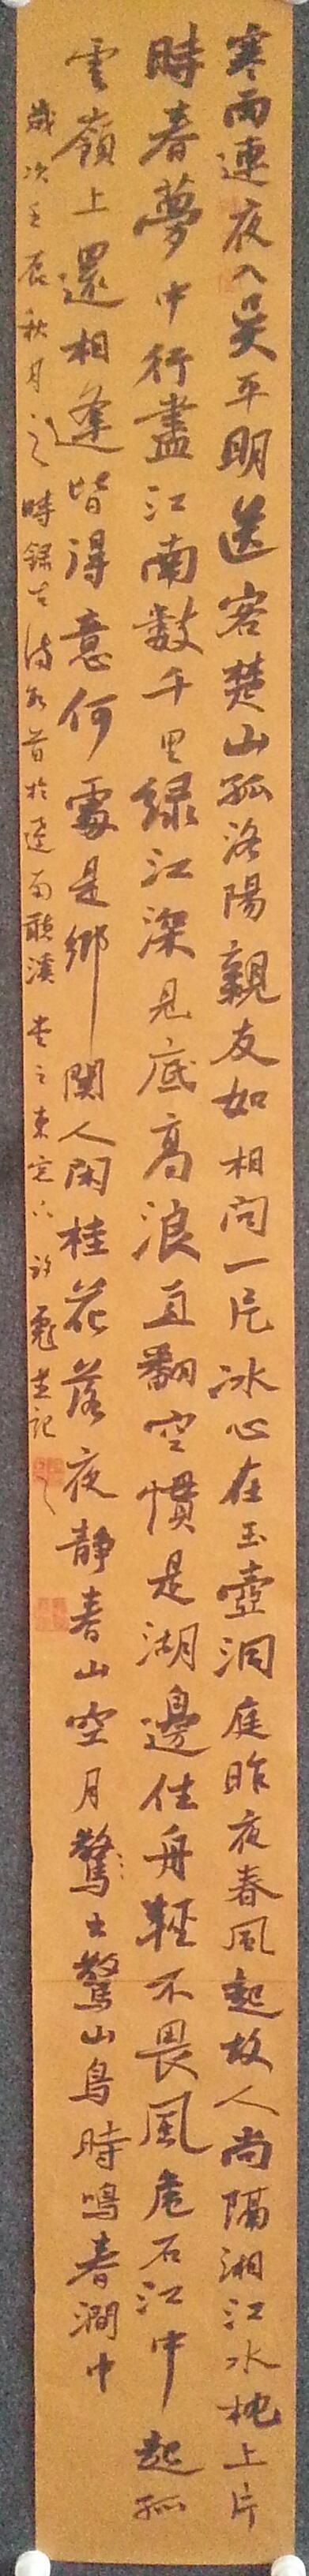 寒雨連夜入吴平明送客楚山孤洛陽親友如相問一片冰心在玉壺洞庭昨夜春風起故人尚隔湘江水枕上片
時春夢中行盡江南數千里绿江深見底高浪直翻空慣是湖邊住舟輕不畏風危石江中起孤
雲嶺上還相逢皆得意何處是鄉關人闲桂花落夜静春山空月驚出驚山鳥時鳴春澗中
歲次壬辰秋月之時録古詩於